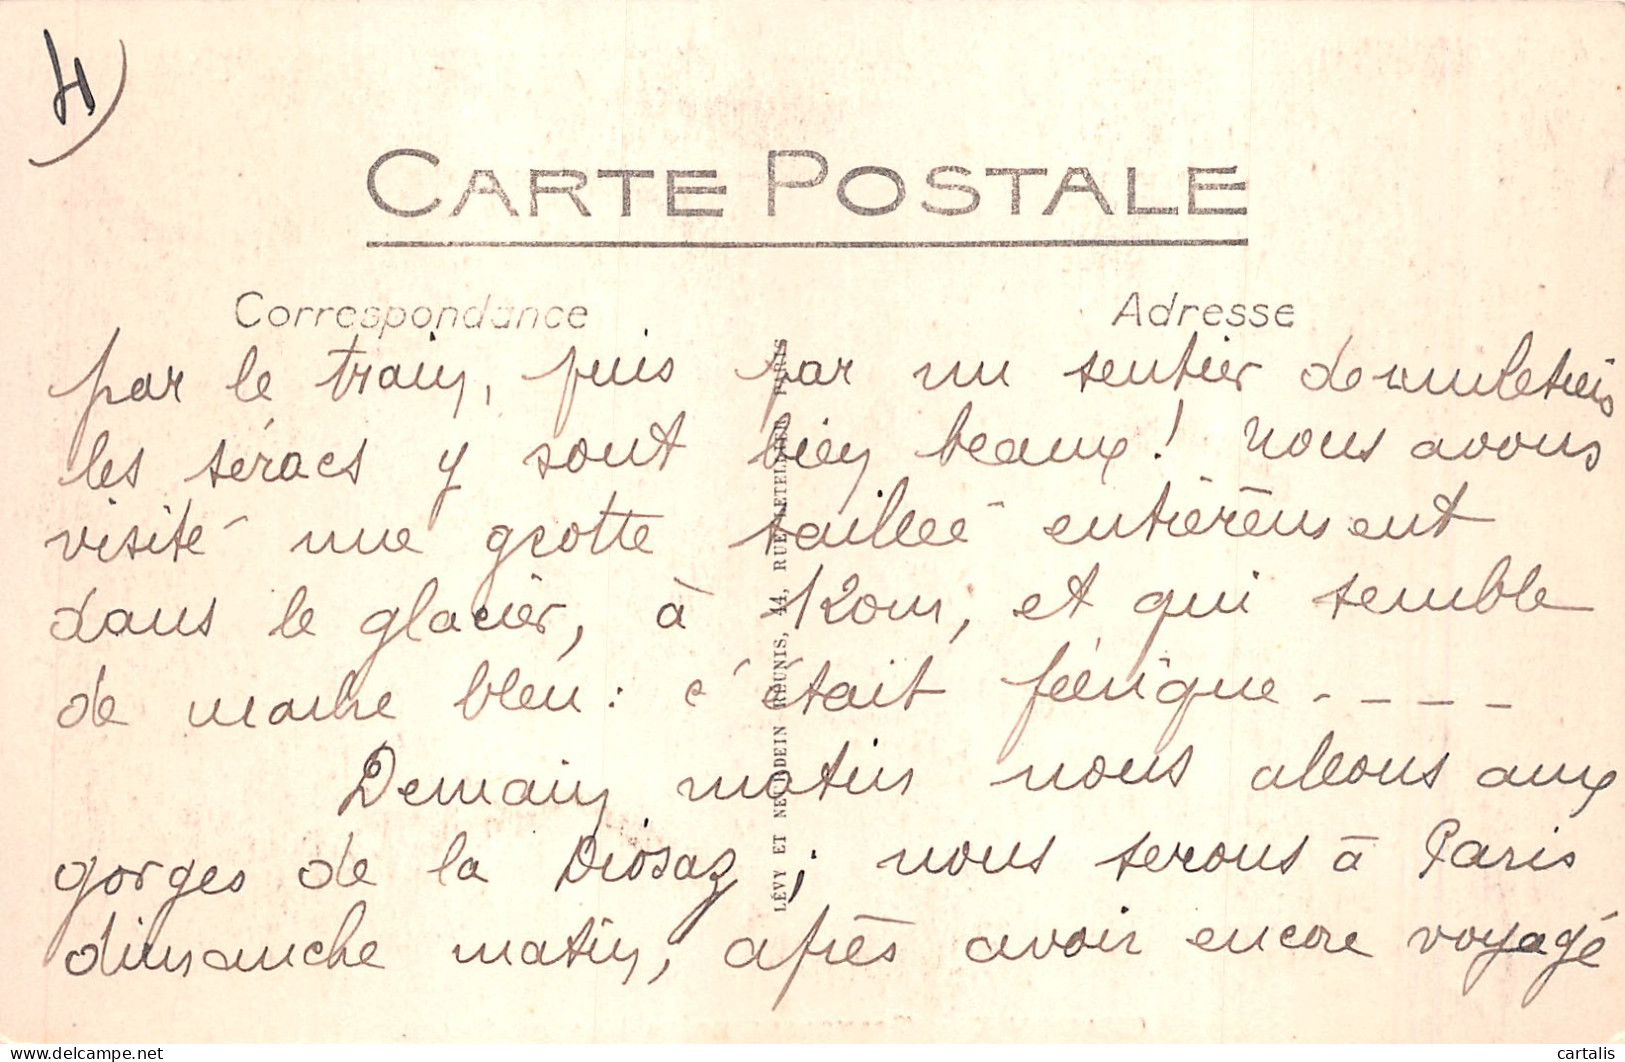 4)
CARTE POSTALE
Correspondance
Adresse
par le train, puis par un sentier de muletiers
les séracs y sont bien beaux ! Nous avons
visité une grotte taillée entièrement
dans le glacier, à 120m, et qui semble
de marbre bleu : c'était féerique - - - -
Demain matin nous allons aux
gorges de la Diosaz ; nous serons à Paris
dimanche matin, après avoir encore voyagé
LÉVY ET NEURDEIN RÉUNIS, 44, RUE LETELLIER, PARIS
https://www.delcampe.net
cartalis